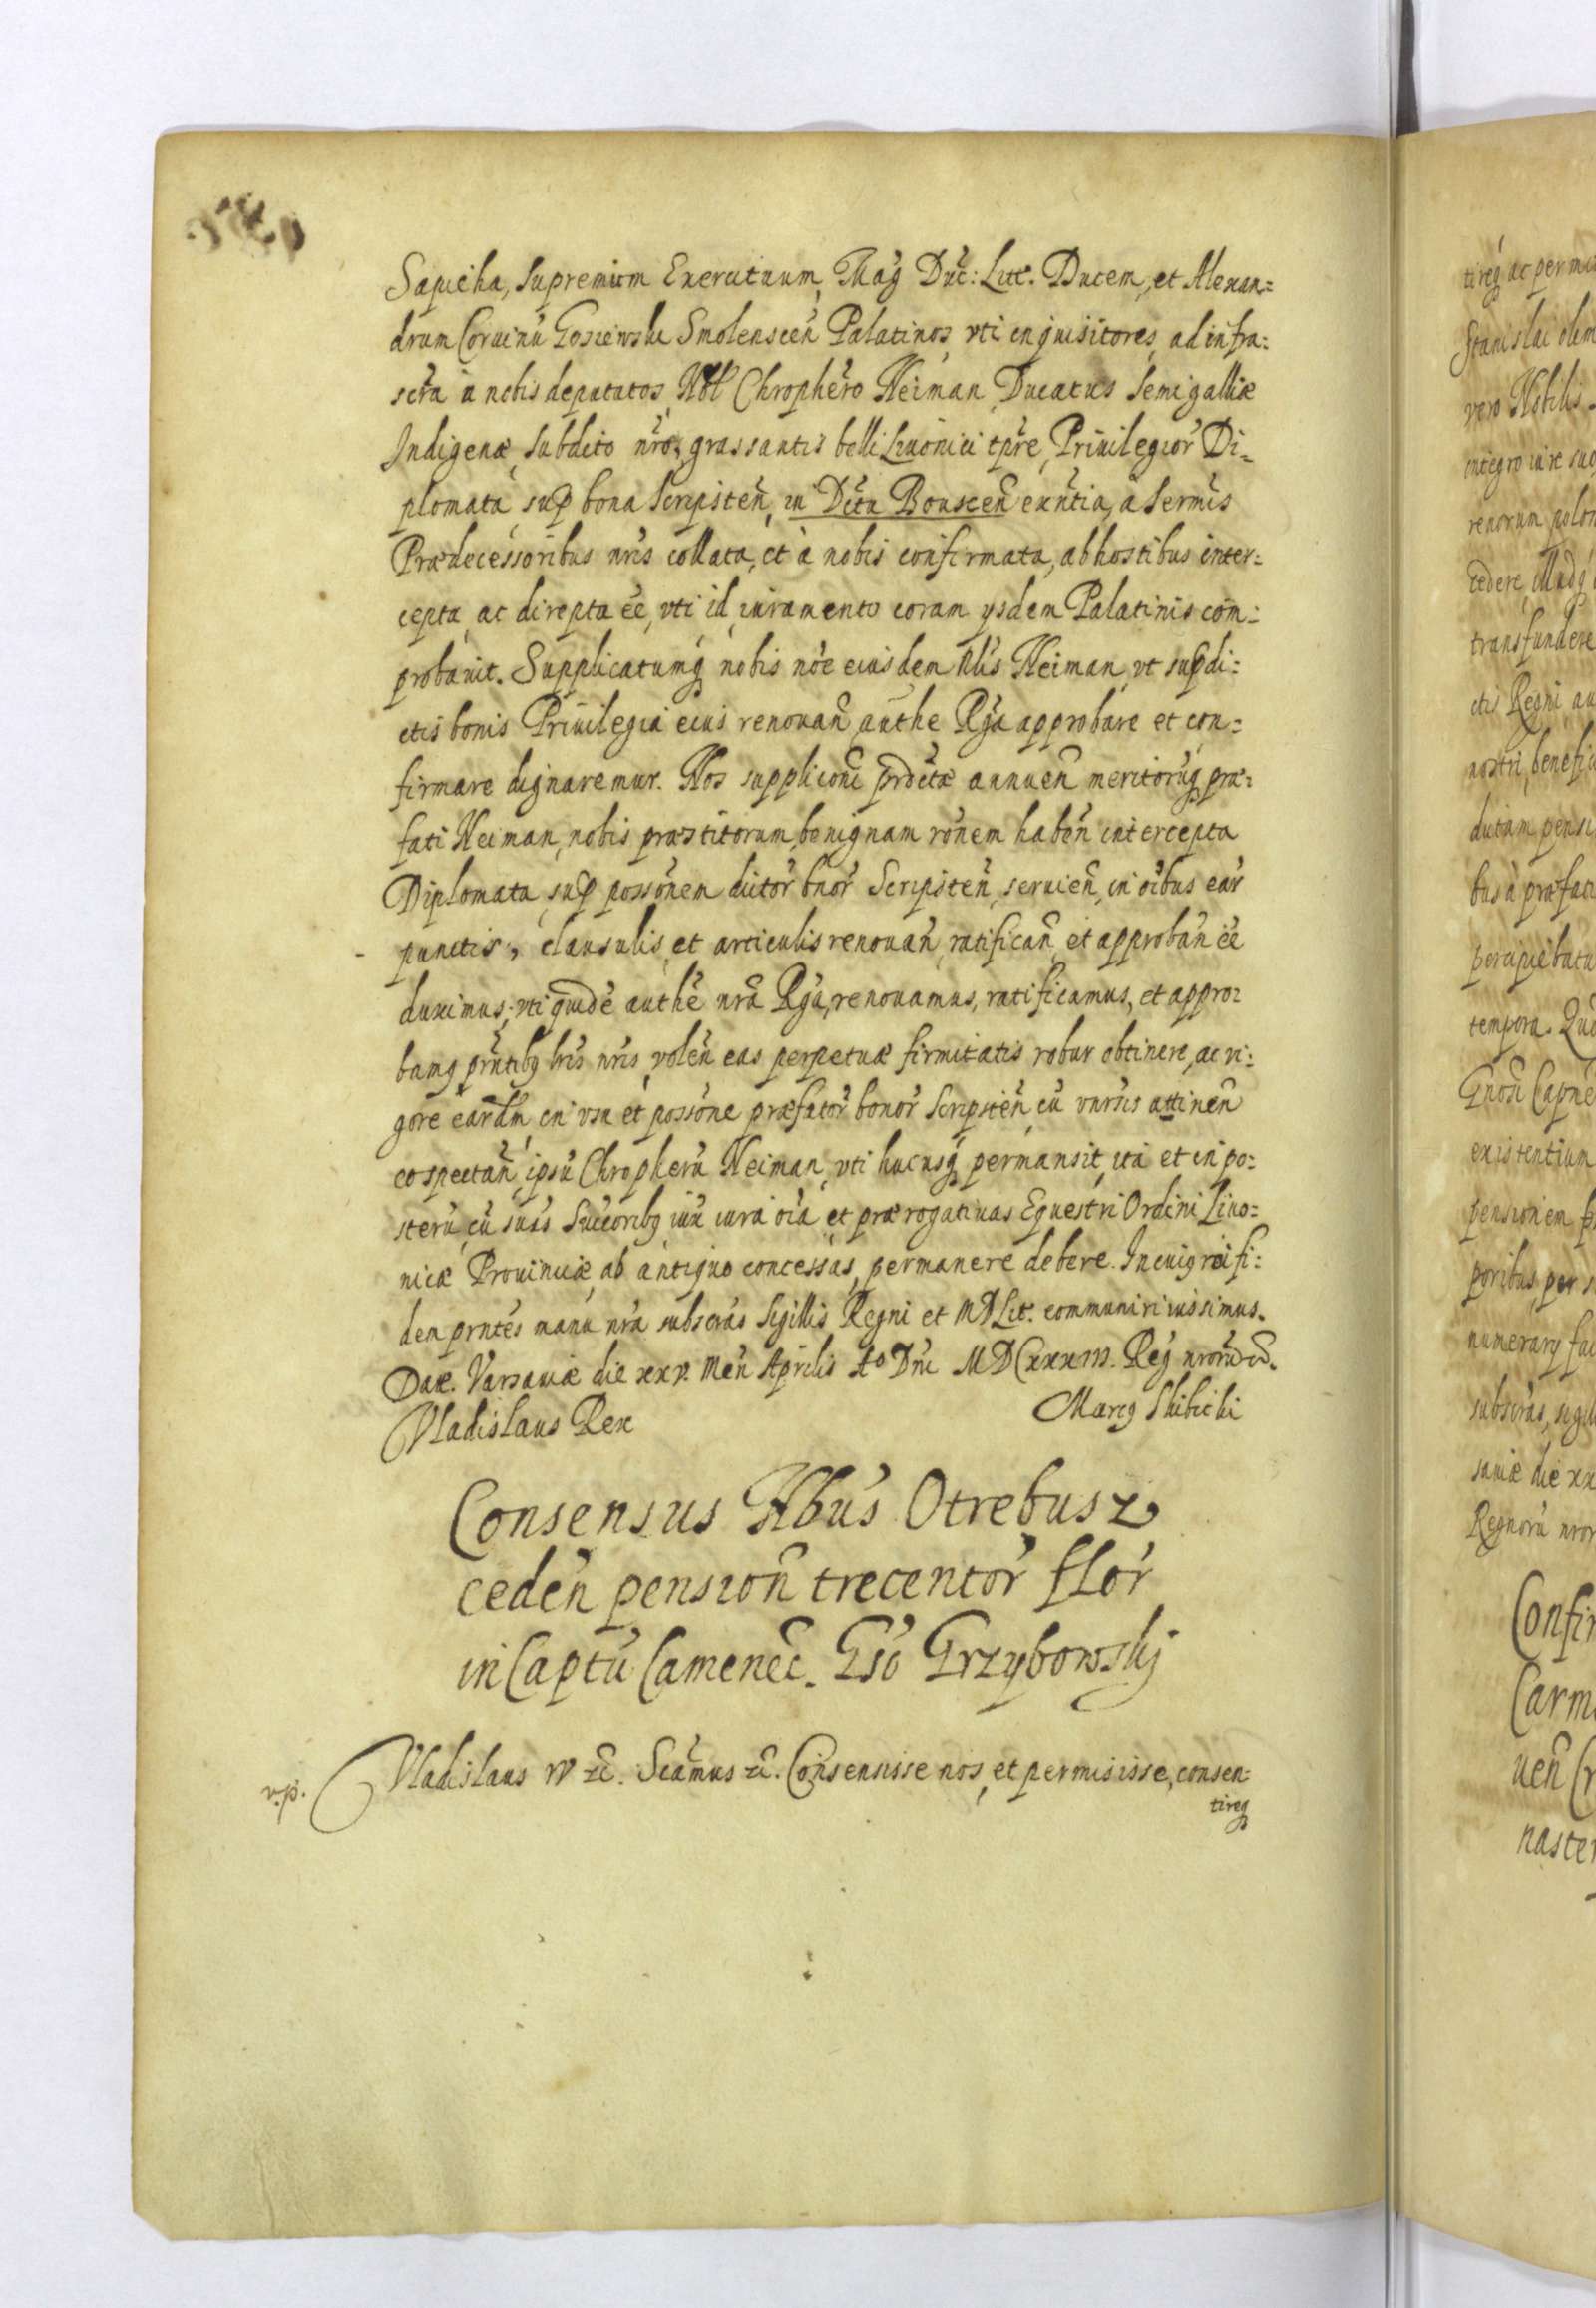 Sapieha, Supremum Exercituum, Mag Duc: Litt. Ducem, et Alexan=
drum Coruinũ Gosiewski Smolenscen̄ Palatinos, vti inquisitores, ad infra=
scrta a nobis deputatos, Nobl Chrophero Neiman, Ducatus Semigalliæ
Indigenæ, Subdito nr̃o, grassantis belli Liuonici tpr̃e, Priuilegior̃ Di=
plomata, sup bona Scripsten̄, in Dctu Bouscen̄ exñtia, a Sermis
Prædecessoribus nris collata, et à nobis confirmata, ab hostibus inter=
cepta, ac direpta eẽ, vti id, iuramento coram ysdem Palatinis com=
probauit. Supplicatumq́ nobis nõe eiusdem Nlis Neiman, vt sup di=
ctis bonis Priuilegia eius renouan̄, authe Rg̃a approbare et con=
firmare dignaremur. Nos supplicoñi prdctæ annuen̄ meritorũq præ=
fati Neiman, nobis præstitorum, benignam rõnem haben̄ intercepta
Diplomata, sup possõnem dictor̃ bnor̃ Scripsten̄, seruien̄, in oĩbus ear̃
punctis, clausulis, et articulis renouan̄, ratifican̄, et approban̄ eẽ
duximus, vti quidẽ authẽ nrã Rg̃a, renouamus, ratificamus, et appro=
bamq prñtibq lris nris, volen̄ eas perpetuæ firmitatis robur obtinere, ac vi=
gore eardm̃ in vsu et possõne præfator̃ bonor̃ Scripsten̄, cũ vnrsis attinen̄
eo spectan̄, ipsũ Chropherũ Neiman, vti hucusq́ permansit, ita et in po=
sterũ, cũ suis Succoribq iux iura oĩa et prærogatiuas Equestri Ordini Liuo=
nicæ Prouinciæ, ab antiquo concessas, permanere debere. In cuiq rei fi=
dem prntes manu nrã subscras Sigillis Regni et MD Lit. communiri iussimus.
Dat. Varsauiæ die xxv. Men̄ Aprilis Ao Dni MDCxxxiii. Reg nrorũ etc.
Vladislaus Rex Marcq Skibicki
Consensus Nbus Otrebusz
ceden̄ pension̄ trecentor̃ flor̃
in Captũ Camenec̃. Gsõ Grzybowskj
v.p. Vladislaus IV etc̃. Sc̃amus etc̃. Consensisse nos, et permisisse, consen=
tireq
tireq ac permi
Stanislai olim
vero Nobilis
integro iure suo
renorum polon
cedere, illudq
transfundere
ctis Regni au
nostri, benefi
dictam pensi
bus à præfati
percipiebatu
tempora. Quo
Gnosi Capne
existentium
pensionem
poribus, per
numerary fac
subscras, sigil
sauiæ die xx
Regnorũ nror
Confir
Carm
uen̄ Cr
naster